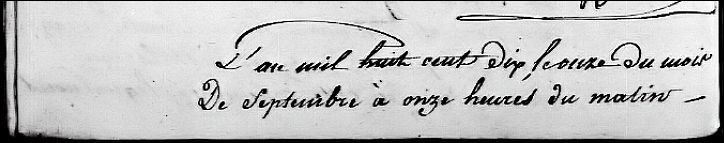 L'an mil huit cent dix, le onze du mois
De Septembre à onze heures, du matin —